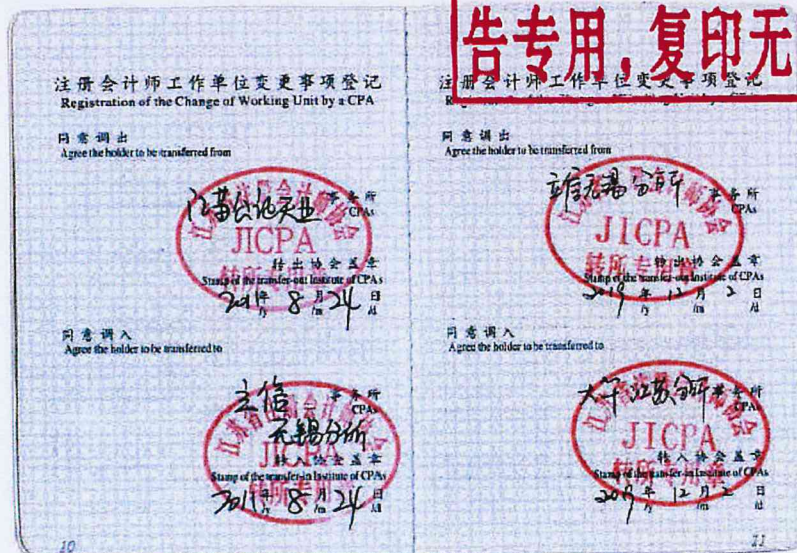 告专用，复印无
注册会计师工作单位变更事项登记
Registration of the Change of Working Unit by a CPA
同意调出
Agree the holder to be transferred from
江苏公证天业 事务所
CPAs
江苏省注册会计师协会
JICPA
转所专用章
转出协会盖章
Stamp of the transfer-out Institute of CPAs
年 8 月 24 日
/y /m /d
同意调入
Agree the holder to be transferred to
立信 事务所
CPAs
无锡分所
江苏省注册会计师协会
JICPA
转所专用章
转入协会盖章
Stamp of the transfer-in Institute of CPAs
年 8 月 24 日
/y /m /d
10
注册会计师工作单位变更事项登记
同意调出
Agree the holder to be transferred from
立信无锡分所 事务所
CPAs
江苏省注册会计师协会
JICPA
转所专用章
转出协会盖章
Stamp of the transfer-out Institute of CPAs
2019 年 12 月 2 日
/y /m /d
同意调入
Agree the holder to be transferred to
大华江苏分所 事务所
CPAs
江苏省注册会计师协会
JICPA
转所专用章
转入协会盖章
Stamp of the transfer-in Institute of CPAs
2019 年 12 月 2 日
/y /m /d
11